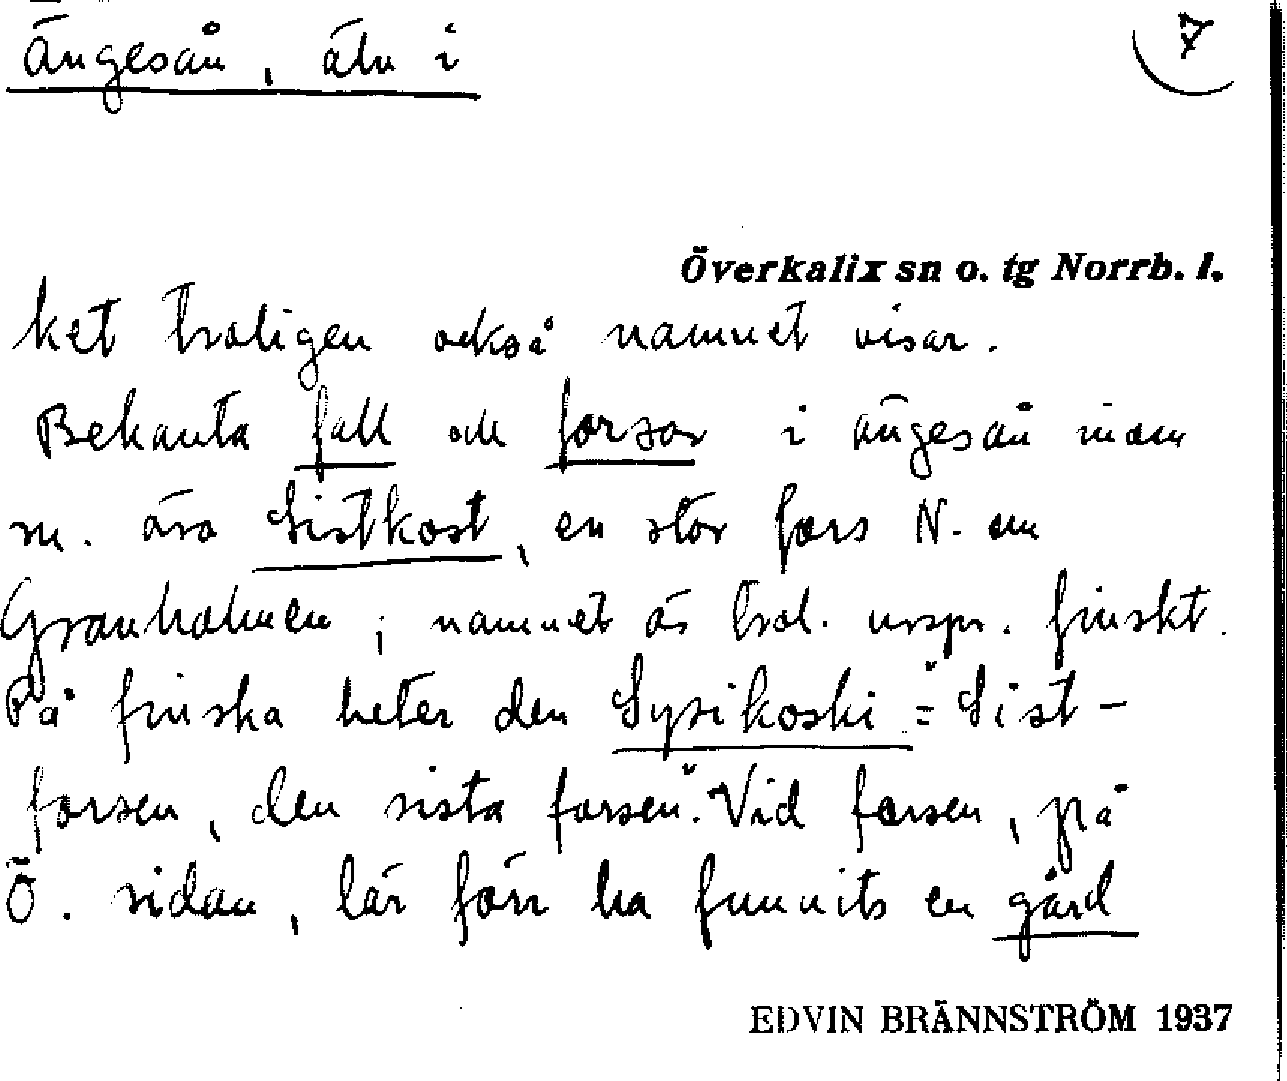 Ängesån, älv i
7
Överkalix sn o. tg Norrb. l.
ket troligen också namnet visar.
Bekanta fall och forsar i Ängesån inom
sn. äro Sistkost, en stor fors N. om
Granholmen; namnet är trol. urspr. finskt.
På finska heter den Sysikoski = "Sist-
forsen, den sista forsen". Vid forsen, på
Ö. sidan, lär förr ha funnits en gård
EDVIN BRÄNNSTRÖM 1937